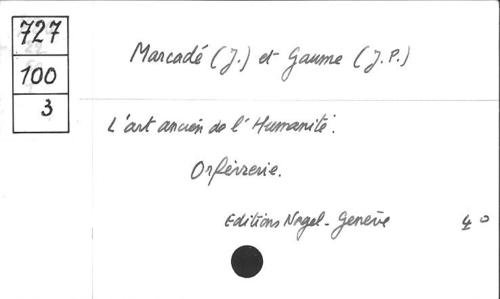 727
100
3
Marcadé (J.) et Gaume (J.P.)
L'art ancien de l'Humanité.
Orfèvrerie.
Editions Nagel - Genève 4°